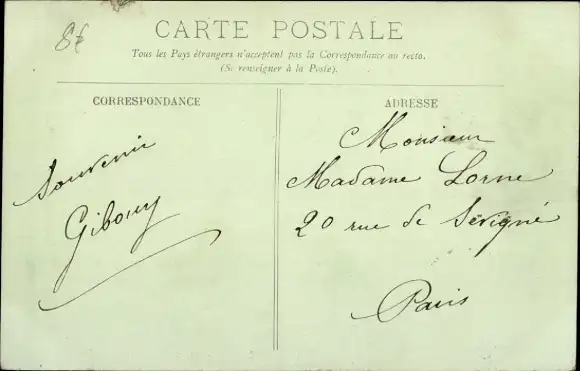 8€
CARTE POSTALE
Tous les Pays étrangers n'acceptent pas la Correspondance au recto.
(Se renseigner à la Poste).
CORRESPONDANCE
Souvenir
Gibouy
ADRESSE
Monsieur
Madame Lorne
20 rue de Sévigné
Paris